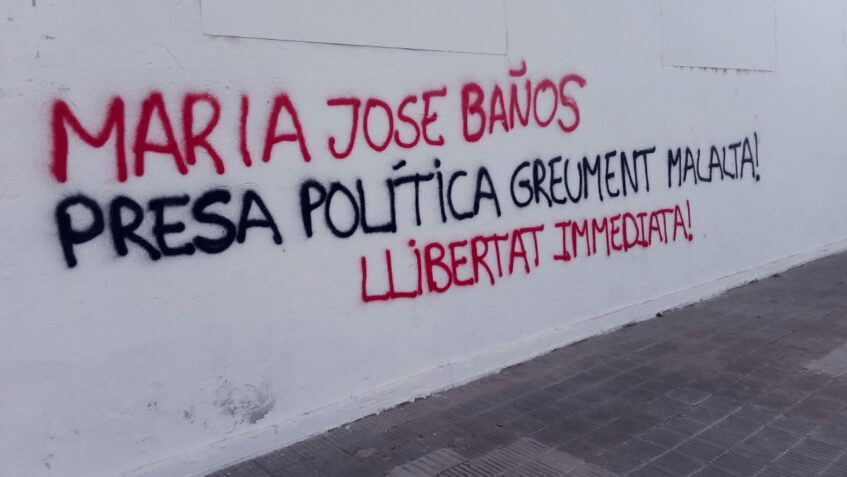 MARIA JOSE BAÑOS
PRESA POLÍTICA GREUMENT MALALTA!
LLIBERTAT IMMEDIATA!